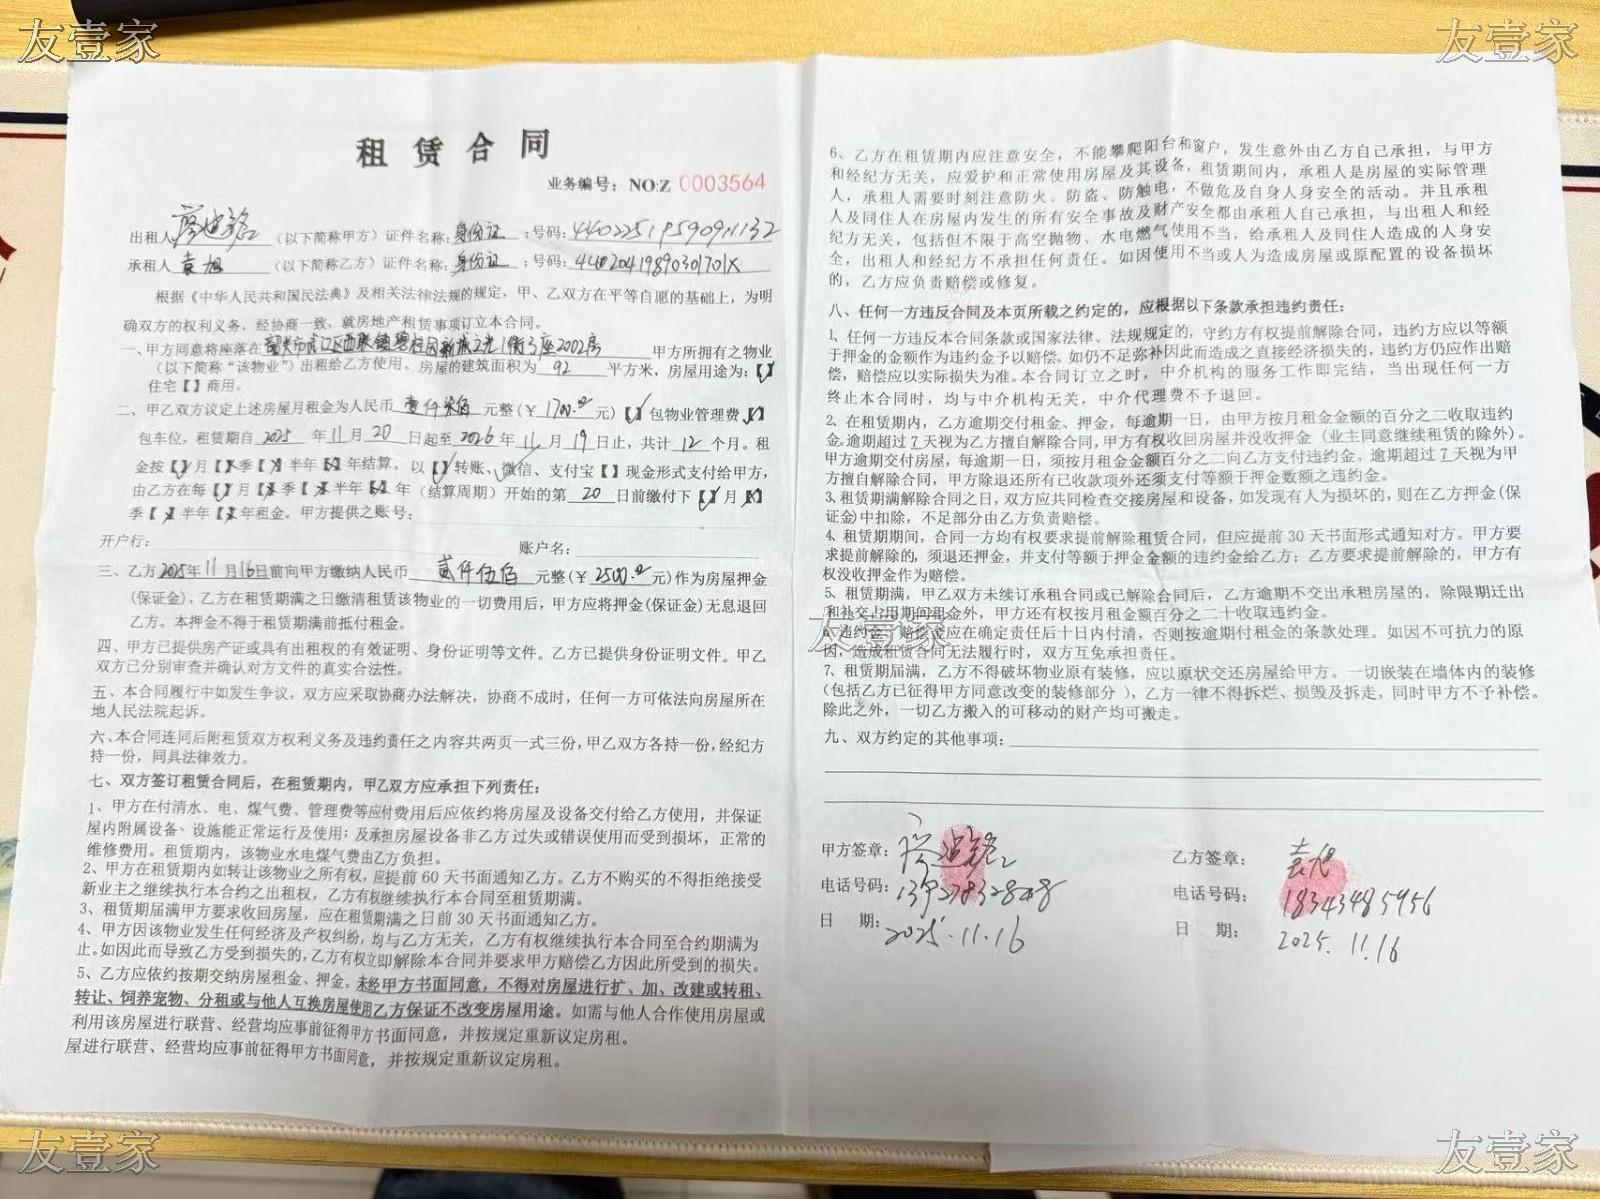 友壹家
友壹家
租赁合同
业务编号：NO:Z 0003564
出租人 （以下简称甲方）证件名称：身份证 ；号码：
承租人 袁旭 （以下简称乙方）证件名称：身份证 ；号码：44020419890301701X
根据《中华人民共和国民法典》及相关法律法规的规定，甲、乙双方在平等自愿的基础上，为明
确双方的权利义务，经协商一致，就房地产租赁事项订立本合同。
一、甲方同意将座落在 韶关市武江区西联镇碧桂园新城之光1街3座2002房 甲方所拥有之物业
（以下简称“该物业”）出租给乙方使用。房屋的建筑面积为 92 平方米，房屋用途为：【√】
住宅【 】商用。
二、甲乙双方议定上述房屋月租金为人民币 壹仟柒佰 元整（¥ 1700.00 元）【√】包物业管理费【√】
包车位，租赁期自 2025 年 11 月 20 日起至 2026 年 11 月 19 日止，共计 12 个月。租
金按【√】月【×】季【×】半年【×】年结算，以【√】转账、微信、支付宝【 】现金形式支付给甲方，
由乙方在每【√】月【×】季【×】半年【×】年（结算周期）开始的第 20 日前缴付下【√】月【×】
季【×】半年【×】年租金。甲方提供之账号：
开户行： 账户名：
三、乙方 2025年11月16日前向甲方缴纳人民币 贰仟伍佰 元整（¥ 2500.00 元）作为房屋押金
(保证金)，乙方在租赁期满之日缴清租赁该物业的一切费用后，甲方应将押金(保证金)无息退回
乙方。本押金不得于租赁期满前抵付租金。
四、甲方已提供房产证或具有出租权的有效证明、身份证明等文件。乙方已提供身份证明文件。甲乙
双方已分别审查并确认对方文件的真实合法性。
五、本合同履行中如发生争议，双方应采取协商办法解决，协商不成时，任何一方可依法向房屋所在
地人民法院起诉。
六、本合同连同后附租赁双方权利义务及违约责任之内容共两页一式三份，甲乙双方各持一份，经纪方
持一份，同具法律效力。
七、双方签订租赁合同后，在租赁期内，甲乙双方应承担下列责任：
1、甲方在付清水、电、煤气费、管理费等应付费用后应依约将房屋及设备交付给乙方使用，并保证
屋内附属设备、设施能正常运行及使用；及承担房屋设备非乙方过失或错误使用而受到损坏，正常的
维修费用。租赁期内，该物业水电煤气费由乙方负担。
2、甲方在租赁期内如转让该物业之所有权，应提前 60 天书面通知乙方。乙方不购买的不得拒绝接受
新业主之继续执行本合约之出租权，乙方有权继续执行本合同至租赁期满。
3、租赁期届满甲方要求收回房屋，应在租赁期满之日前 30 天书面通知乙方。
4、甲方因该物业发生任何经济及产权纠纷，均与乙方无关，乙方有权继续执行本合同至合约期满为
止。如因此而导致乙方受到损失的，乙方有权立即解除本合同并要求甲方赔偿乙方因此所受到的损失。
5、乙方应依约按期交纳房屋租金、押金。未经甲方书面同意，不得对房屋进行扩、加、改建或转租、
转让、饲养宠物、分租或与他人互换房屋使用乙方保证不改变房屋用途。如需与他人合作使用房屋或
利用该房屋进行联营、经营均应事前征得甲方书面同意，并按规定重新议定房租。
屋进行联营、经营均应事前征得甲方书面同意，并按规定重新议定房租。
6、乙方在租赁期内应注意安全，不能攀爬阳台和窗户，发生意外由乙方自己承担，与甲方
和经纪方无关，应爱护和正常使用房屋及其设备，租赁期间内，承租人是房屋的实际管理
人，承租人需要时刻注意防火、防盗、防触电，不做危及自身人身安全的活动。并且承租
人及同住人在房屋内发生的所有安全事故及财产安全都由承租人自己承担，与出租人和经
纪方无关，包括但不限于高空抛物、水电燃气使用不当，给承租人及同住人造成的人身安
全，出租人和经纪方不承担任何责任。如因使用不当或人为造成房屋或原配置的设备损坏
的，乙方应负责赔偿或修复。
八、任何一方违反合同及本页所载之约定的，应根据以下条款承担违约责任：
1、任何一方违反本合同条款或国家法律、法规规定的，守约方有权提前解除合同，违约方应以等额
于押金的金额作为违约金予以赔偿。如仍不足弥补因此而造成之直接经济损失的，违约方仍应作出赔
偿，赔偿应以实际损失为准。本合同订立之时，中介机构的服务工作即完结，当出现任何一方
终止本合同时，均与中介机构无关，中介代理费不予退回。
2、在租赁期内，乙方逾期交付租金、押金，每逾期一日，由甲方按月租金金额的百分之二收取违约
金。逾期超过 7 天视为乙方擅自解除合同，甲方有权收回房屋并没收押金（业主同意继续租赁的除外）。
甲方逾期交付房屋，每逾期一日，须按月租金金额百分之二向乙方支付违约金。逾期超过 7 天视为甲
方擅自解除合同，甲方除退还所有已收款项外还须支付等额于押金数额之违约金。
3、租赁期满解除合同之日，双方应共同检查交接房屋和设备，如发现有人为损坏的，则在乙方押金(保
证金)中扣除，不足部分由乙方负责赔偿。
4、租赁期期间，合同一方均有权要求提前解除租赁合同，但应提前 30 天书面形式通知对方。甲方要
求提前解除的，须退还押金，并支付等额于押金金额的违约金给乙方；乙方要求提前解除的，甲方有
权没收押金作为赔偿。
5、租赁期满，甲乙双方未续订承租合同或已解除合同后，乙方逾期不交出承租房屋的，除限期迁出
和补交占用期间租金外，甲方还有权按月租金额百分之二十收取违约金。
6、违约金、赔偿金应在确定责任后十日内付清，否则按逾期付租金的条款处理。如因不可抗力的原
因，造成租赁合同无法履行时，双方互免承担责任。
7、租赁期届满，乙方不得破坏物业原有装修，应以原状交还房屋给甲方。一切嵌装在墙体内的装修
(包括乙方已征得甲方同意改变的装修部分 )，乙方一律不得拆烂、损毁及拆走，同时甲方不予补偿。
除此之外，一切乙方搬入的可移动的财产均可搬走。
友壹家
九、双方约定的其他事项：
甲方签章：
电话号码：
日 期：2025.11.16
乙方签章：袁旭
电话号码：18343485956
日 期：2025.11.16
友壹家
友壹家